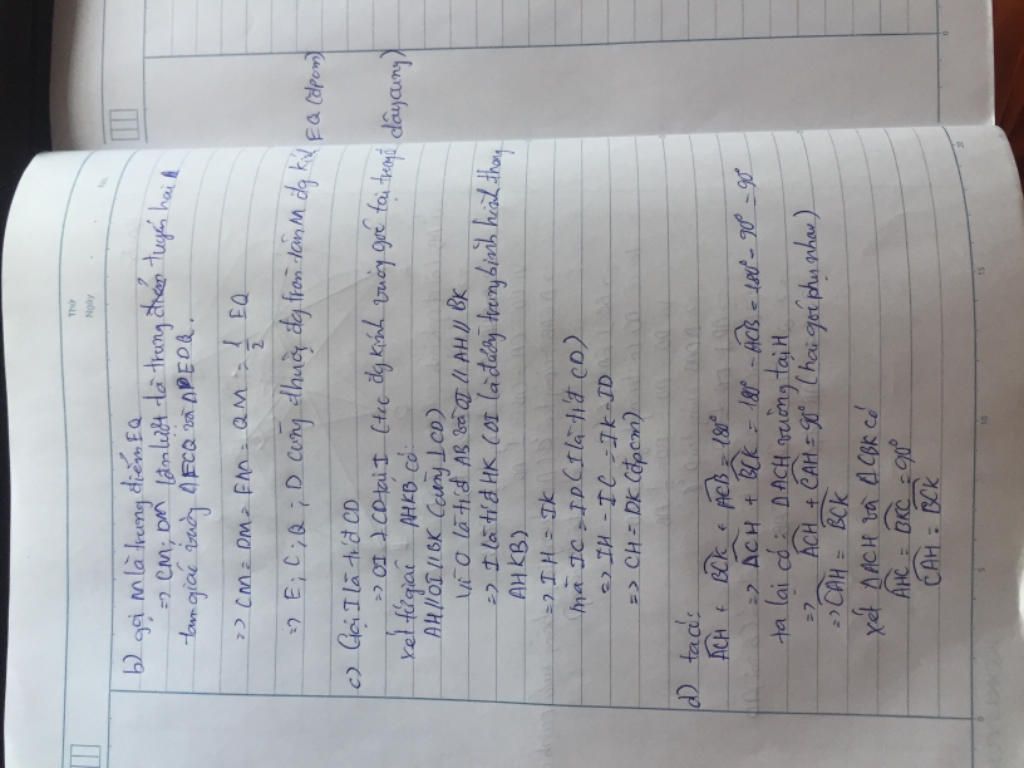 Thứ
Ngày
No.
b) gọi M là trung điểm EQ
=> CM, DM lần lượt là trung tuyến hai Δ
tam giác vuông ΔECQ và ΔEDQ.
=> CM = DM = EM = QM = 1/2 EQ
=> E; C; Q; D cùng thuộc đg tròn tâm M đg kính EQ (đpcm)
c) Gọi I là tđ CD
=> OI ⊥ CD tại I (t/c đg kính vuông góc tại trung điểm dây cung)
xét tứ giác AHKB có:
AH // OI // BK (cùng ⊥ CD)
Vì O là tđ AB và OI // AH // BK
=> I là tđ HK (OI là đường trung bình hình thang
AHKB)
=> IH = IK
mà IC = ID (I là tđ CD)
=> IH - IC = IK - ID
=> CH = DK (đpcm)
d) ta có:
ACH + BCK + ACB = 180°
=> ACH + BCK = 180° - ACB = 180° - 90° = 90°
ta lại có: ΔACH vuông tại H
=> ACH + CAH = 90° (hai góc phụ nhau)
=> CAH = BCK
xét ΔACH và ΔCBK có
AHC = BKC = 90°
CAH = BCK
0
5
10
15
20
0